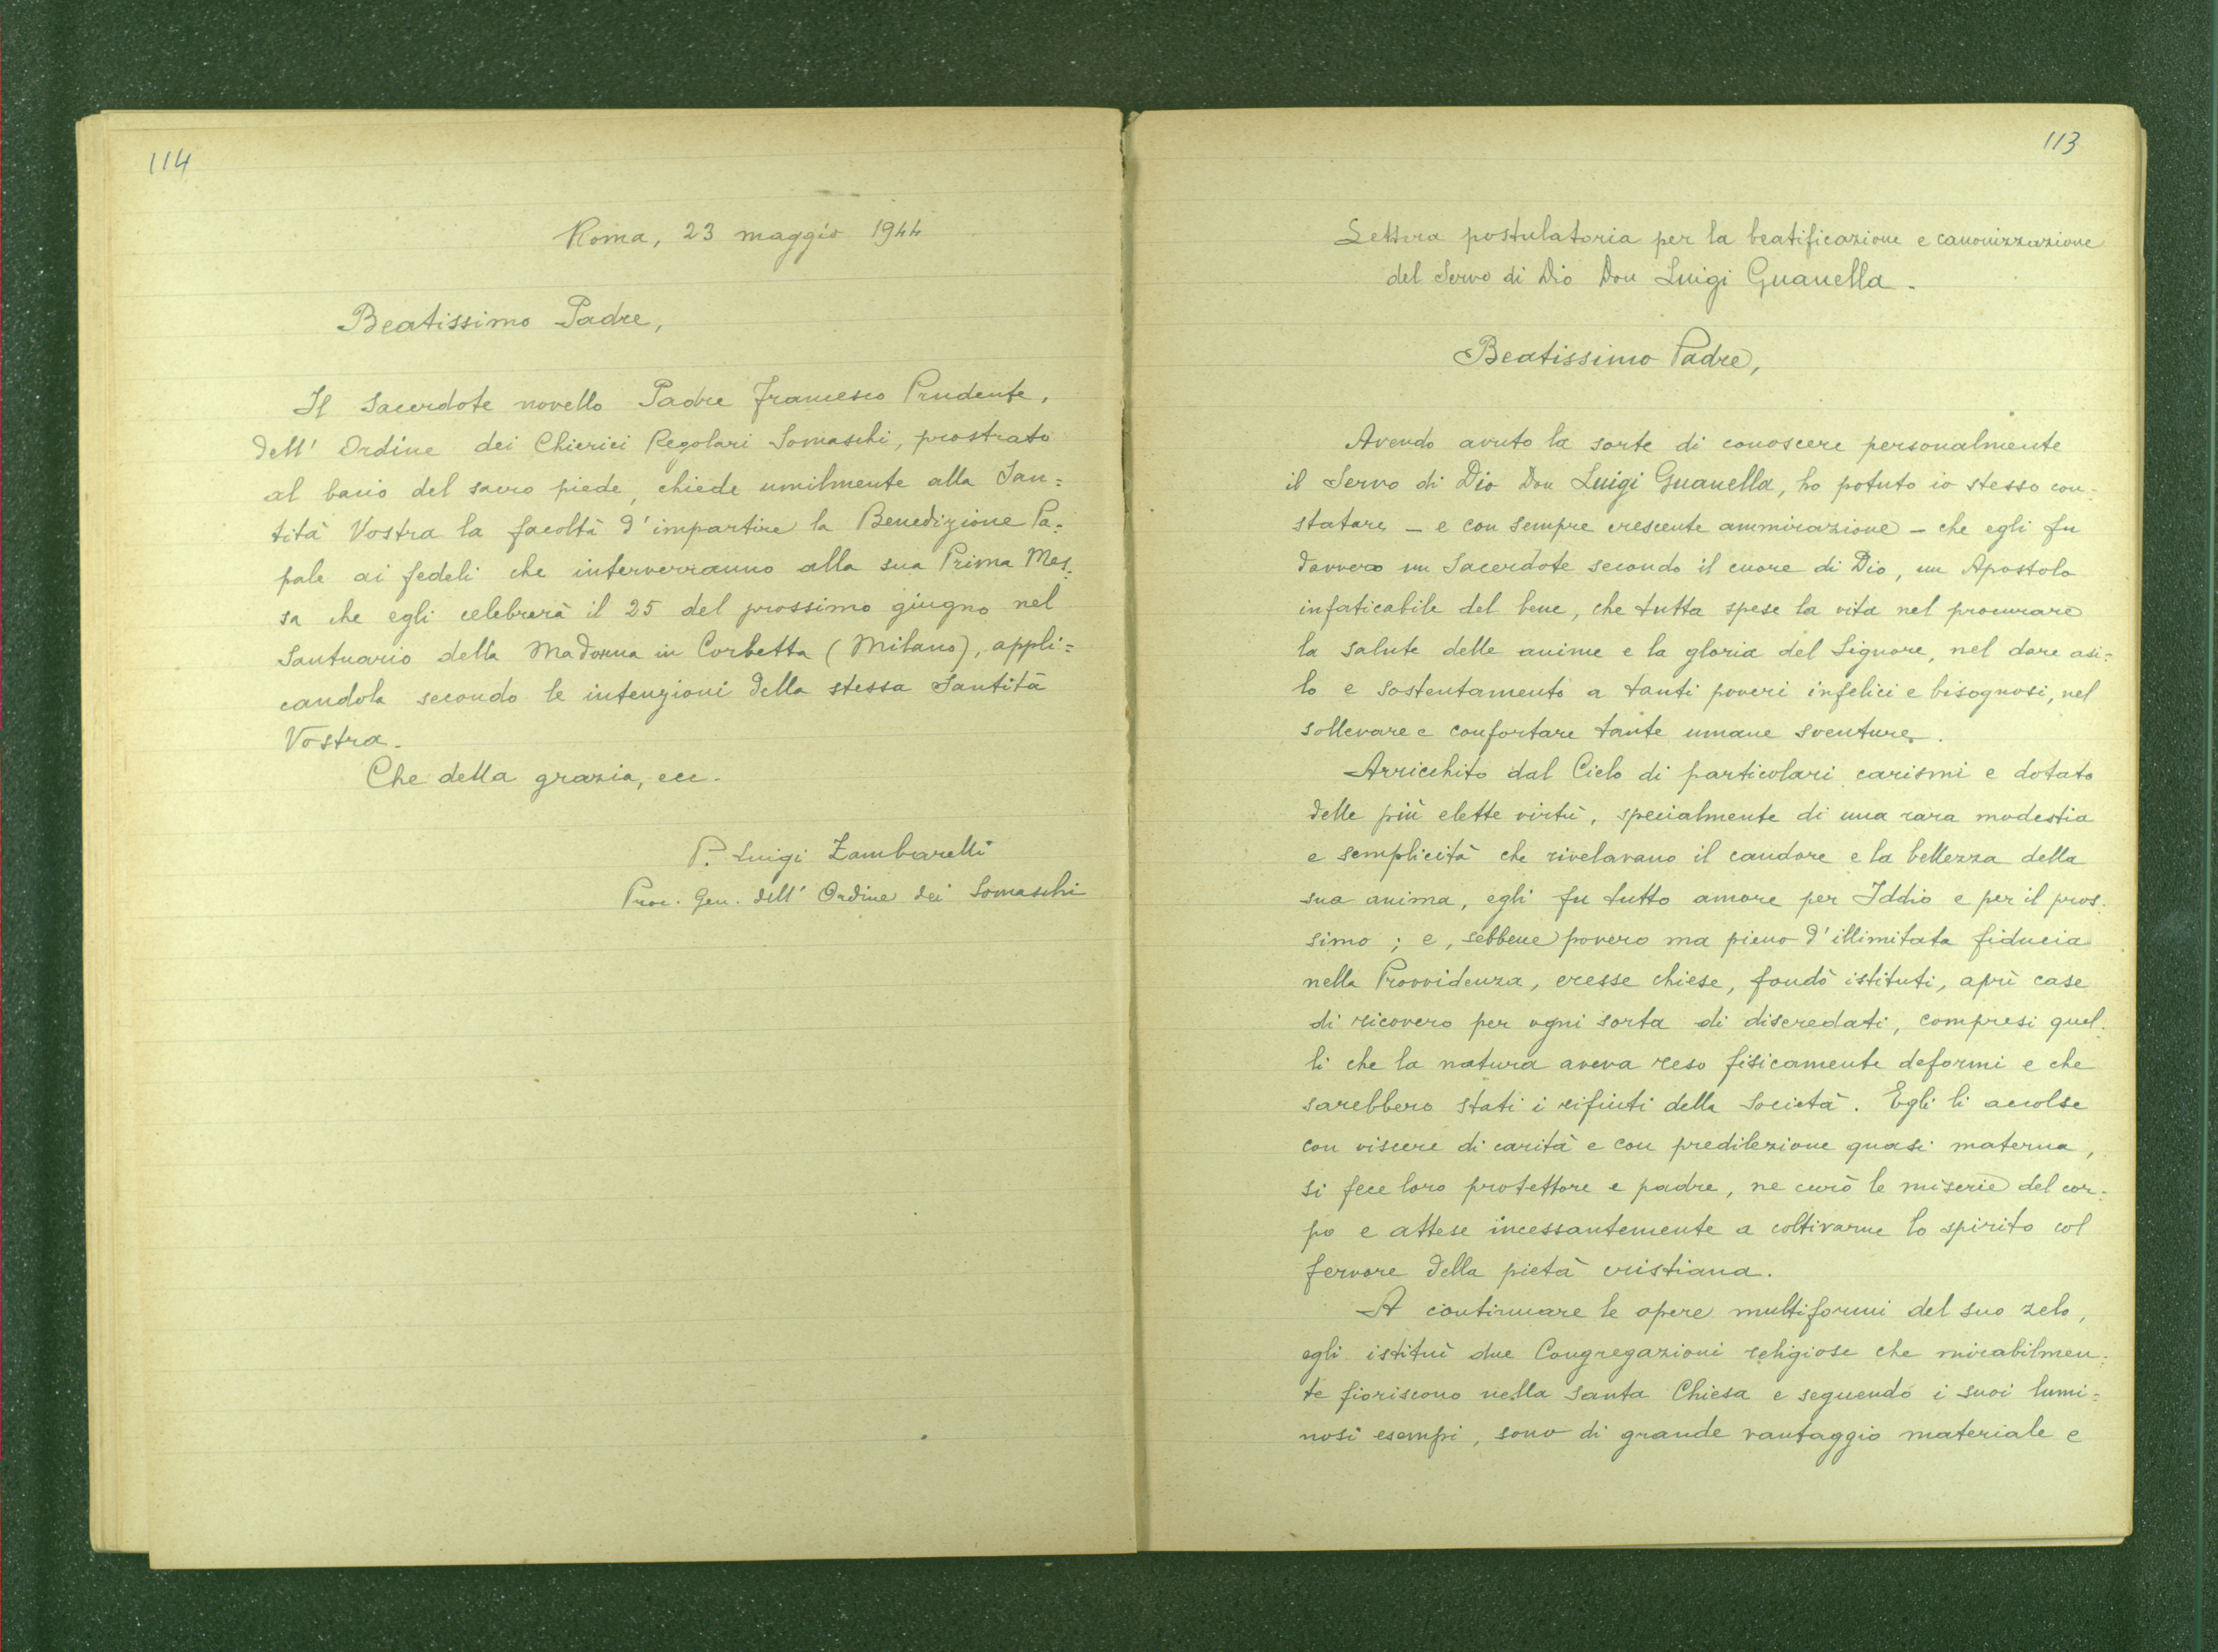 114
Roma, 23 maggio 1944
Beatissimo Padre,
Il Sacerdote novello Padre Francesco Prudente,
dell' Ordine dei Chierici Regolari Somaschi, prostrato
al bacio del sacro piede, chiede umilmente alla San=
tità Vostra la facoltà d'impartire la Benedizione Pa=
pale ai fedeli che interverranno alla sua Prima Mes=
sa che egli celebrerà il 25 del prossimo giugno nel
Santuario della Madonna in Corbetta (Milano), appli=
candola secondo le intenzioni della stessa Santità
Vostra.
Che della grazia, ecc.
P. Luigi Zambarelli
Proc. Gen. dell' Ordine dei Somaschi
113
Lettera postulatoria per la beatificazione e canonizzazione
del Servo di Dio Don Luigi Guanella.
Beatissimo Padre,
Avendo avuto la sorte di conoscere personalmente
il Servo di Dio Don Luigi Guanella, ho potuto io stesso con=
statare – e con sempre crescente ammirazione – che egli fu
davvero un Sacerdote secondo il cuore di Dio, un Apostolo
infaticabile del bene, che tutta spese la vita nel procurare
la salute delle anime e la gloria del Signore, nel dare asi=
lo e sostentamento a tanti poveri infelici e bisognosi, nel
sollevare e confortare tante umane sventure.
Arricchito dal Cielo di particolari carismi e dotato
delle più elette virtù, specialmente di una rara modestia
e semplicità che rivelavano il candore e la bellezza della
sua anima, egli fu tutto amore per Iddio e per il pros=
simo; e, sebbene povero ma pieno d'illimitata fiducia
nella Provvidenza, eresse chiese, fondò istituti, aprì case
di ricovero per ogni sorta di diseredati, compresi quel=
li che la natura aveva reso fisicamente deformi e che
sarebbero stati i rifiuti della Società. Egli li accolse
con viscere di carità e con predilezione quasi materna,
si fece loro protettore e padre, ne curò le miserie del cor=
po e attese incessantemente a coltivarne lo spirito col
fervore della pietà cristiana.
A continuare le opere multiformi del suo zelo,
egli istituì due Congregazioni religiose che mirabilmen=
te fioriscono nella Santa Chiesa e seguendo i suoi lumi=
nosi esempi, sono di grande vantaggio materiale e